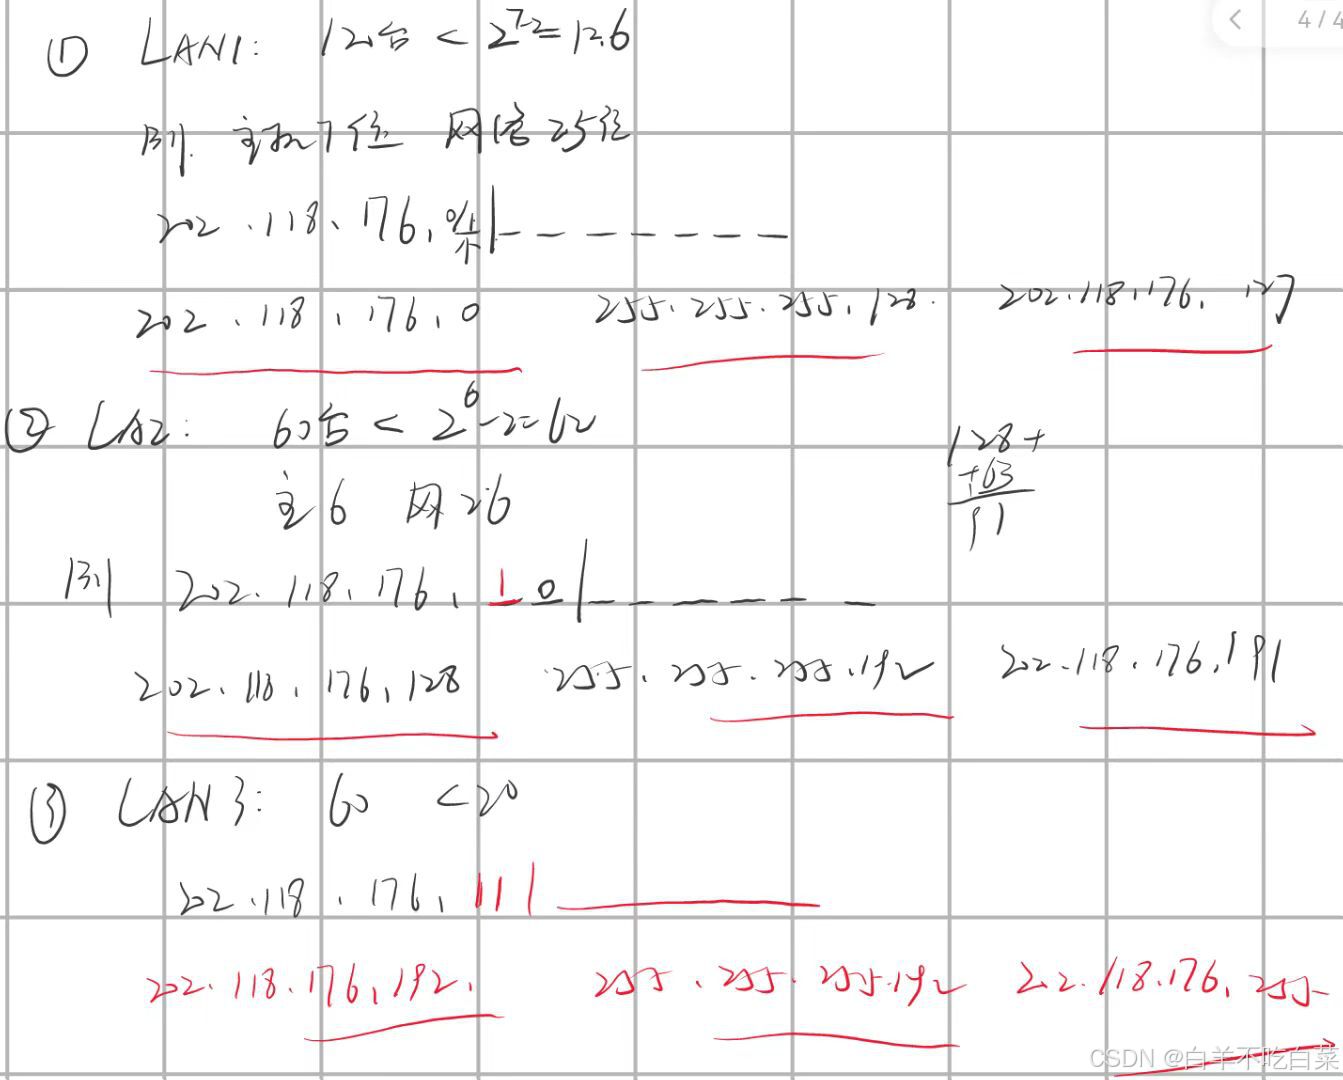 4/4
① LAN1: 120台 < 2^7-2=126
则 主机7位 网络25位
202.118.176.0/1
202.118.176.0 255.255.255.128. 202.118.176.127
② LA2: 60台 < 2^6-2=62
128+
+63
主6 网26
191
则 202.118.176.10
202.118.176.128 255.255.255.192 202.118.176.191
③ LAN3: 60 <20
202.118.176.11
202.118.176.192. 255.255.255.192 202.118.176.255
CSDN @白羊不吃白菜